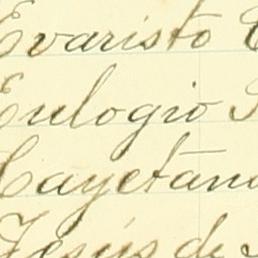 Evaristo
Eulogio
Cayetano
Jesús de